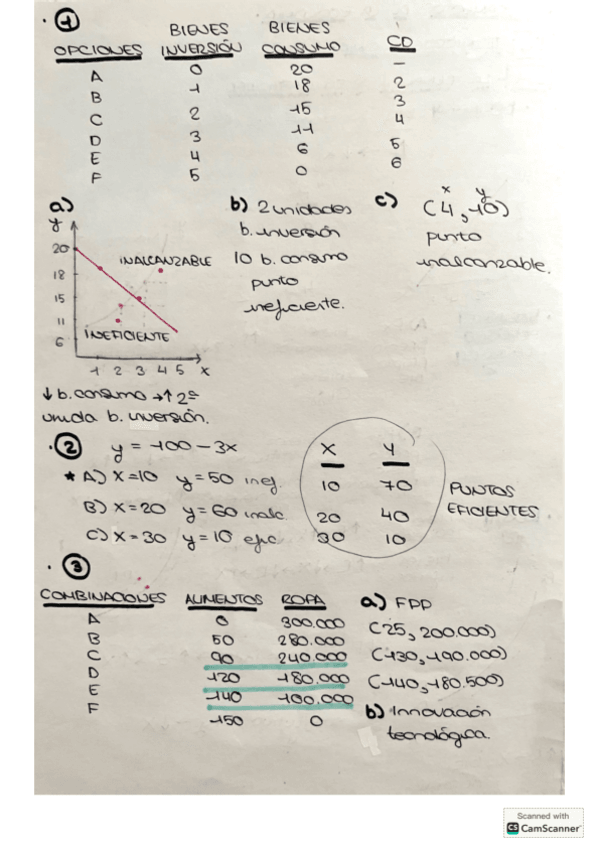 · 1
BIENES BIENES
OPCIONES INVERSIÓN CONSUMO CD
A 0 20 –
B 1 18 2
C 2 15 3
D 3 11 4
E 4 6 5
F 5 0 6
a)
y
20
18
15
11
6
1 2 3 4 5 x
INALCANZABLE
INEFICIENTE
↓ b. consumo → ↑ 2º
unida b. inversión.
b) 2 unidades
b. inversión
10 b. consumo
punto
ineficiente.
c) x y
(4, 10)
punto
inalcanzable.
· 2 y = 100 – 3x
* A) x=10 y=50 inef.
B) x=20 y=60 inalc.
C) x=30 y=10 efic.
X Y
10 70
20 40
30 10
PUNTOS
EFICIENTES
· 3
COMBINACIONES ALIMENTOS ROPA
A 0 300.000
B 50 280.000
C 90 240.000
D 120 180.000
E 140 100.000
F 150 0
a) FPP
(25, 200.000)
(130, 190.000)
(140, 180.500)
b) Innovación
tecnológica.
Scanned with
CS CamScanner